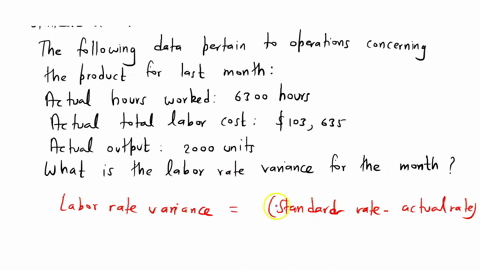 The following data pertain to operations concerning
the product for last month:
Actual hours worked: 6300 hours
Actual total labor cost: $103,635
Actual output: 2000 units
What is the labor rate variance for the month?
Labor rate variance = (Standard rate - actual rate)